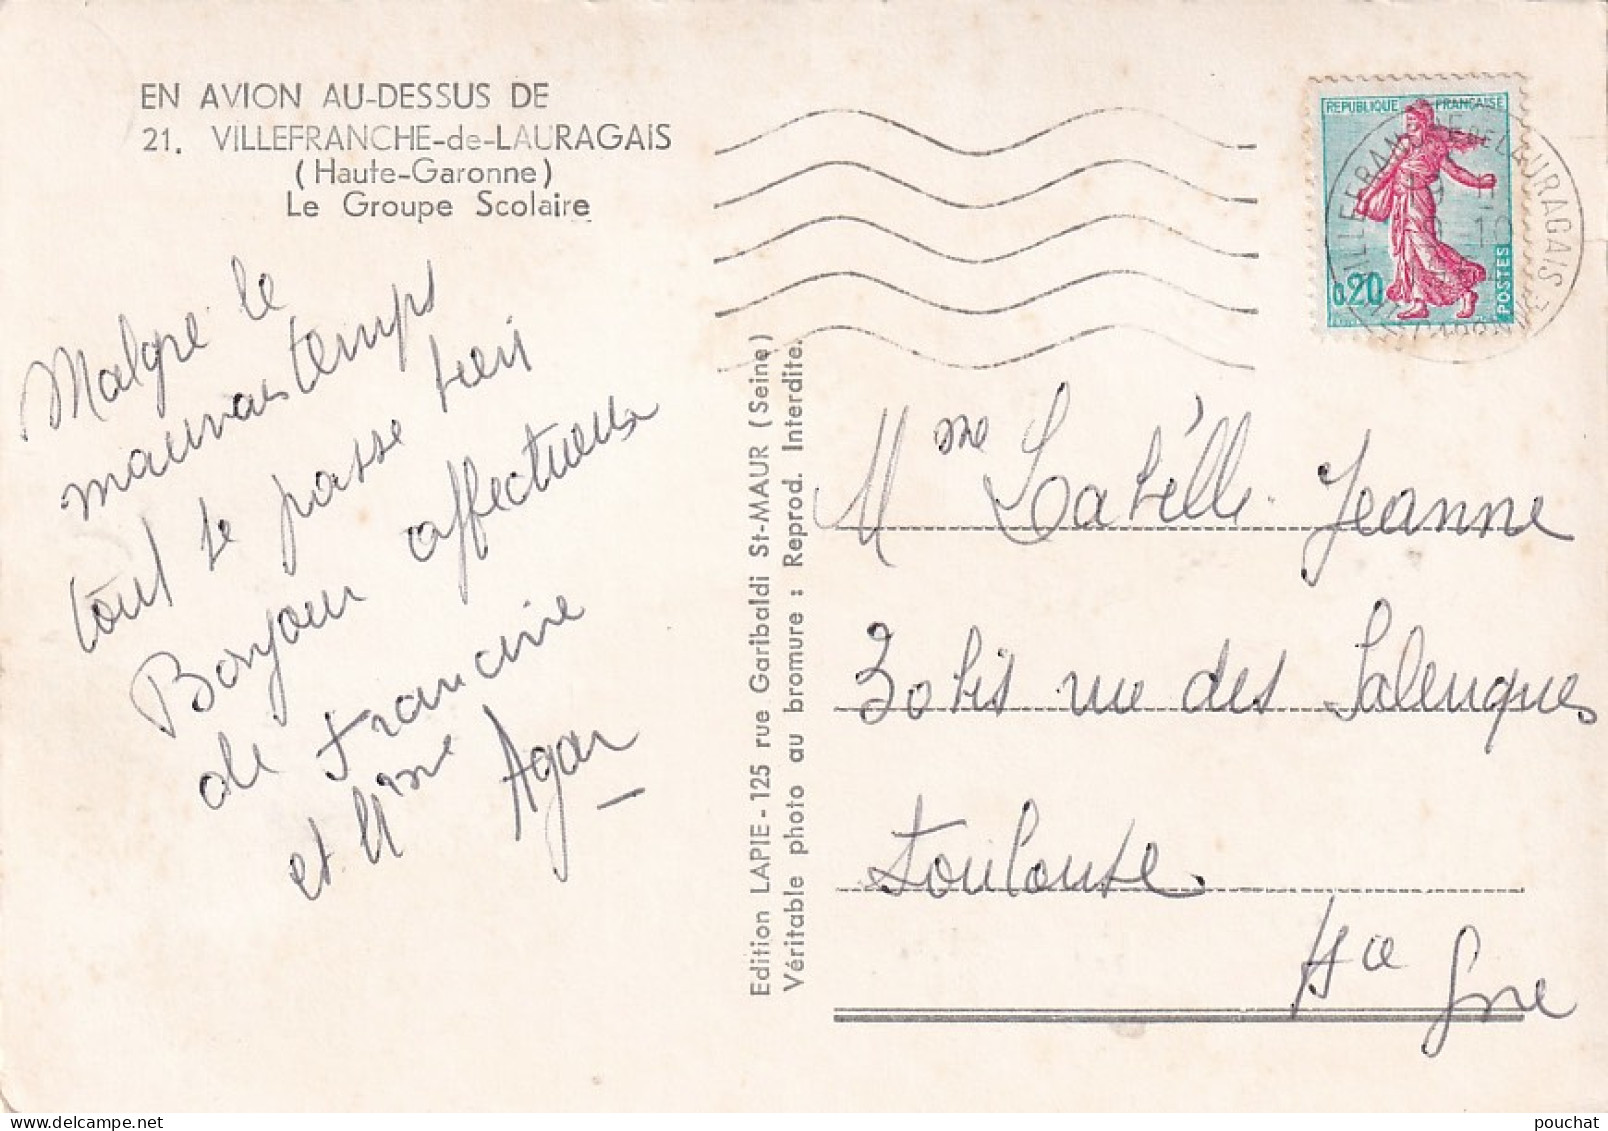 EN AVION AU-DESSUS DE
21. VILLEFRANCHE-de-LAURAGAIS
(Haute-Garonne)
Le Groupe Scolaire
Malgré le
mauvais temps
tout se passe bien
Bonjour affectueux
de Francine
et Mme Agar
Edition LAPIE - 125 rue Garibaldi St-MAUR (Seine)
Véritable photo au bromure : Reprod. Interdite.
REPUBLIQUE FRANÇAISE
0,20
POSTES
VILLEFRANCHE DE LAURAGAIS
Mme Latélle Jeanne
30 bis rue des Salenques
Toulouse
Hte Gne
pouchat